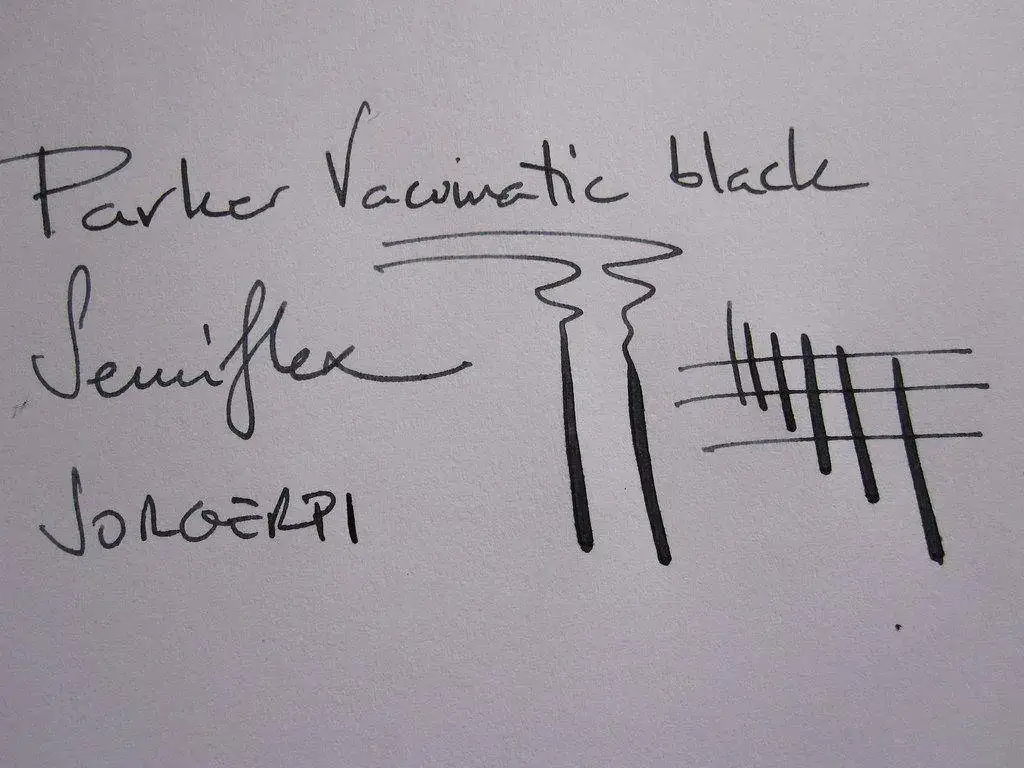 Parker Vacumatic black
Semiflex
JORGERPI